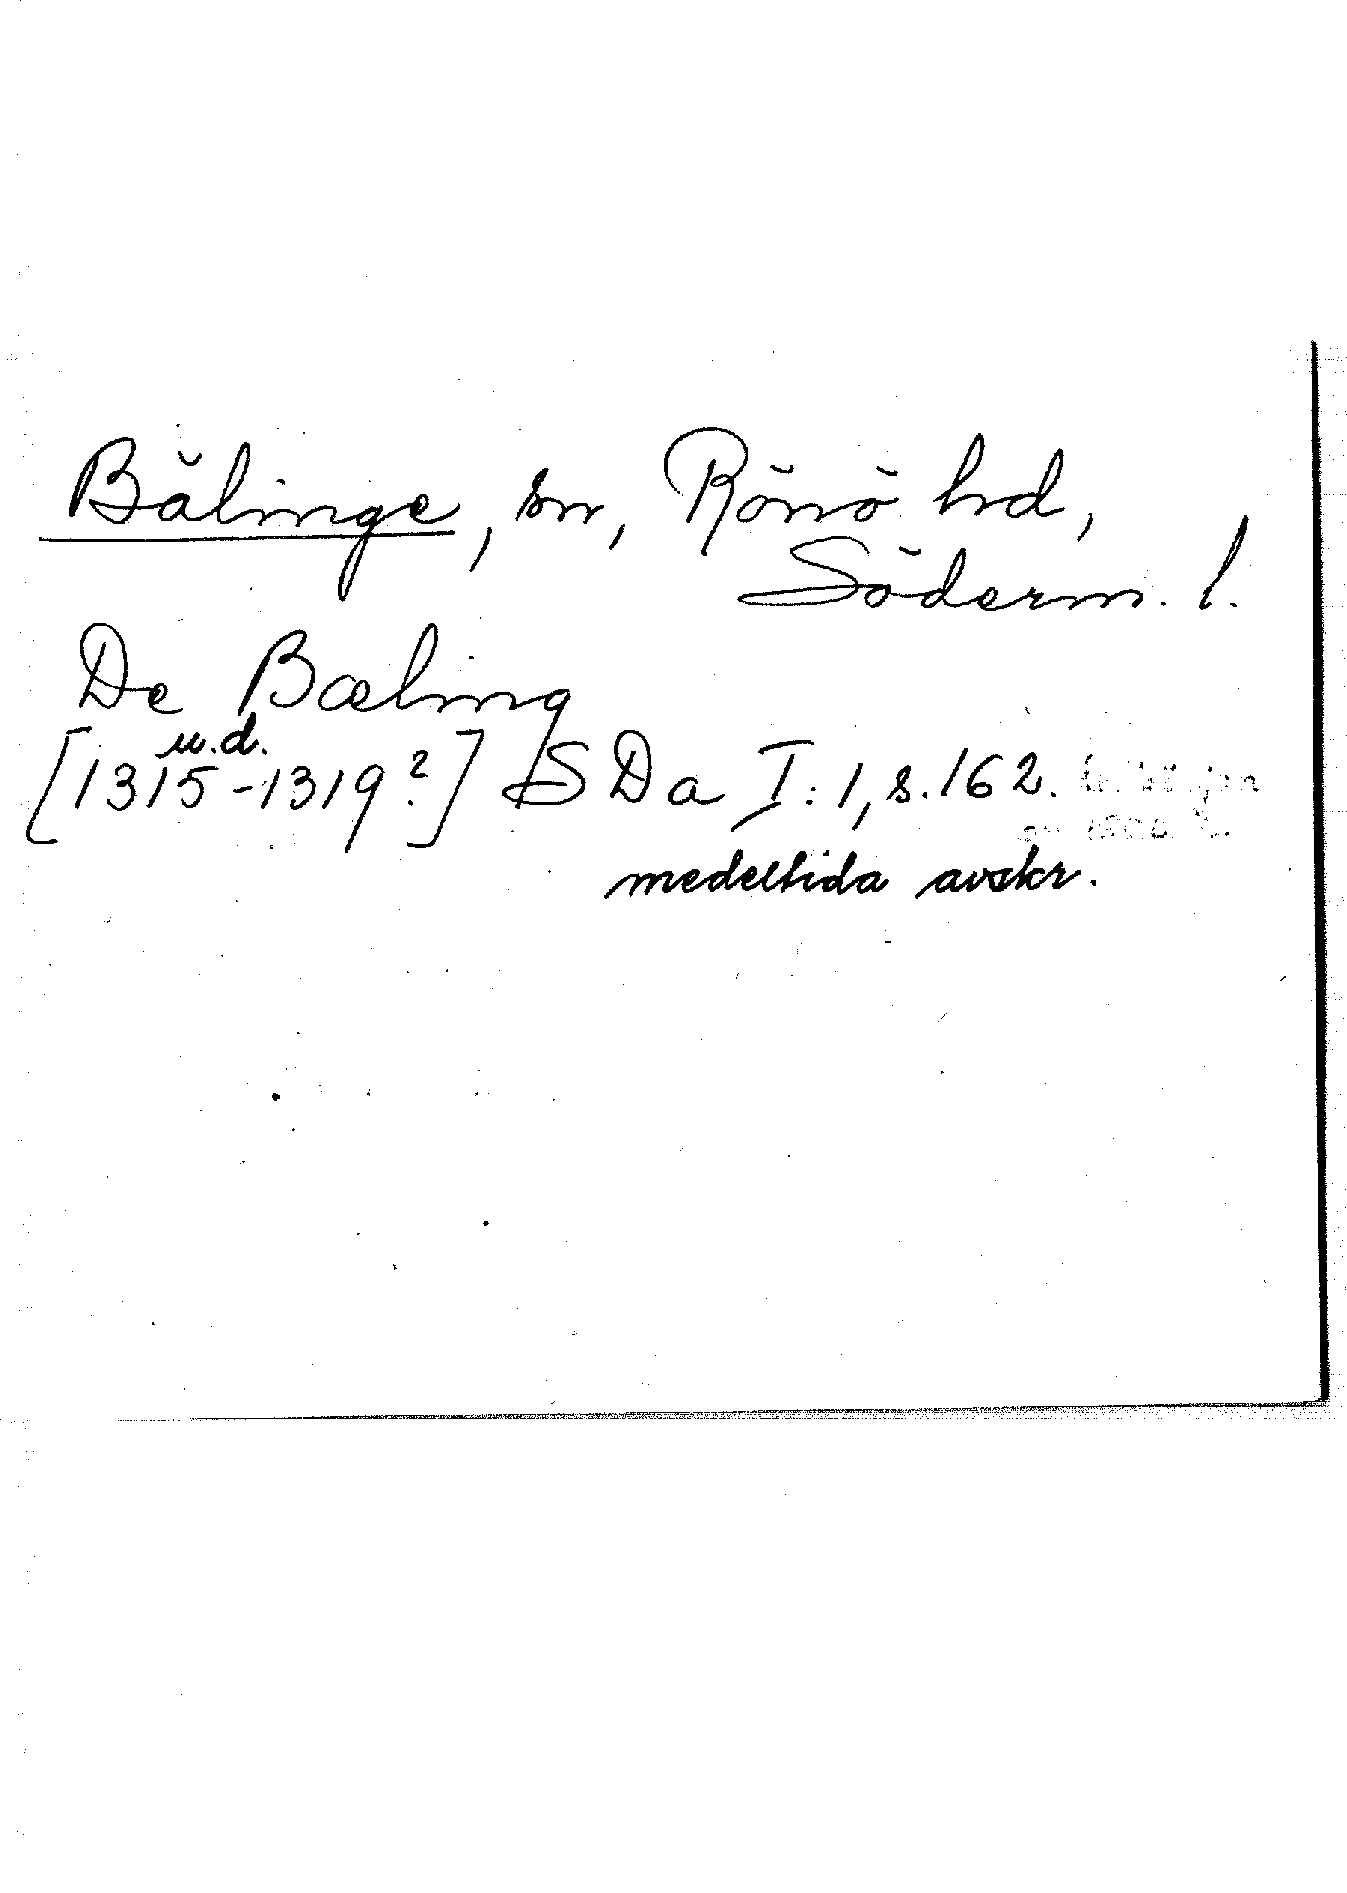 Bälinge, sn, Rönö hd,
Söderm. l.
De Bæling
u.d.
[1315-1319?] SDa I:1, s.162.
medeltida avskr.